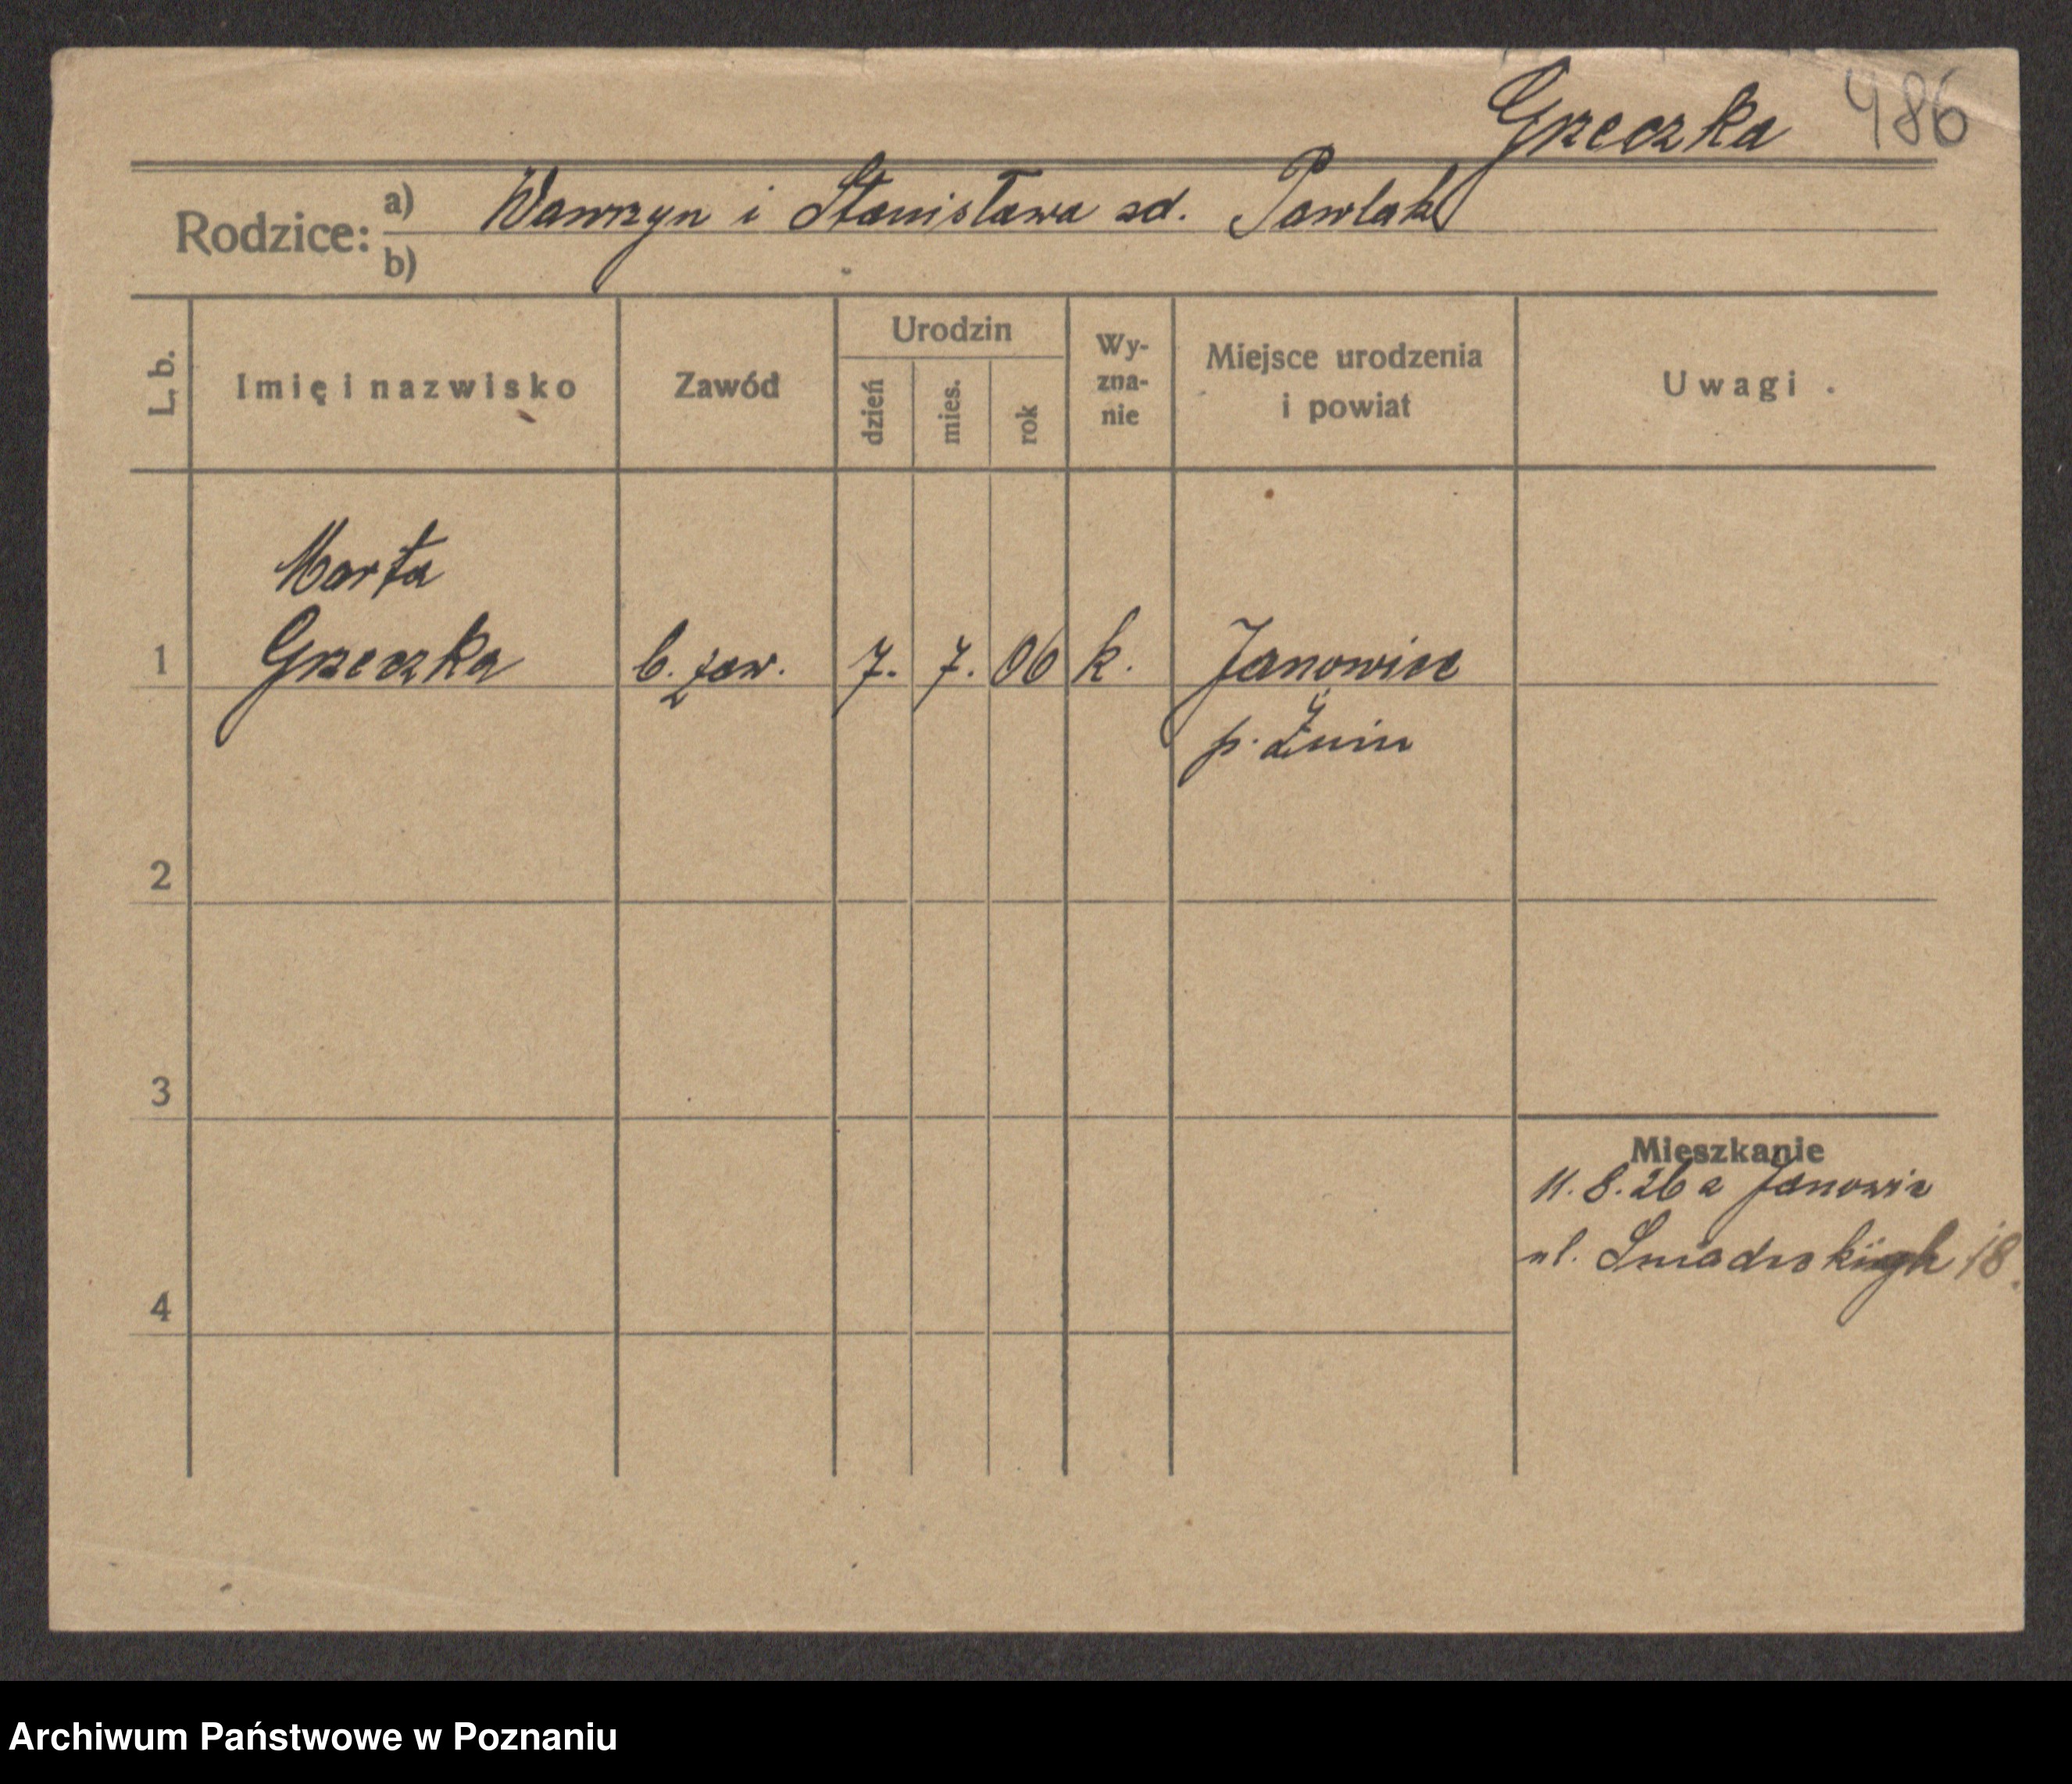 Grzeczka 486
Rodzice: a) Wawrzyn i Stanisława zd. Pawlak
b)
L. b. Imię i nazwisko Zawód Urodzin dzień mies. rok Wy-zna-nie Miejsce urodzenia i powiat Uwagi
Marta
1 Grzeczka b. zaw. 7. 7. 06 k. Janowiec
p. Żnin
2
3
Mieszkanie
11. 8. 26 z Janowca
ul. Śniadeckich 18.
4
Archiwum Państwowe w Poznaniu